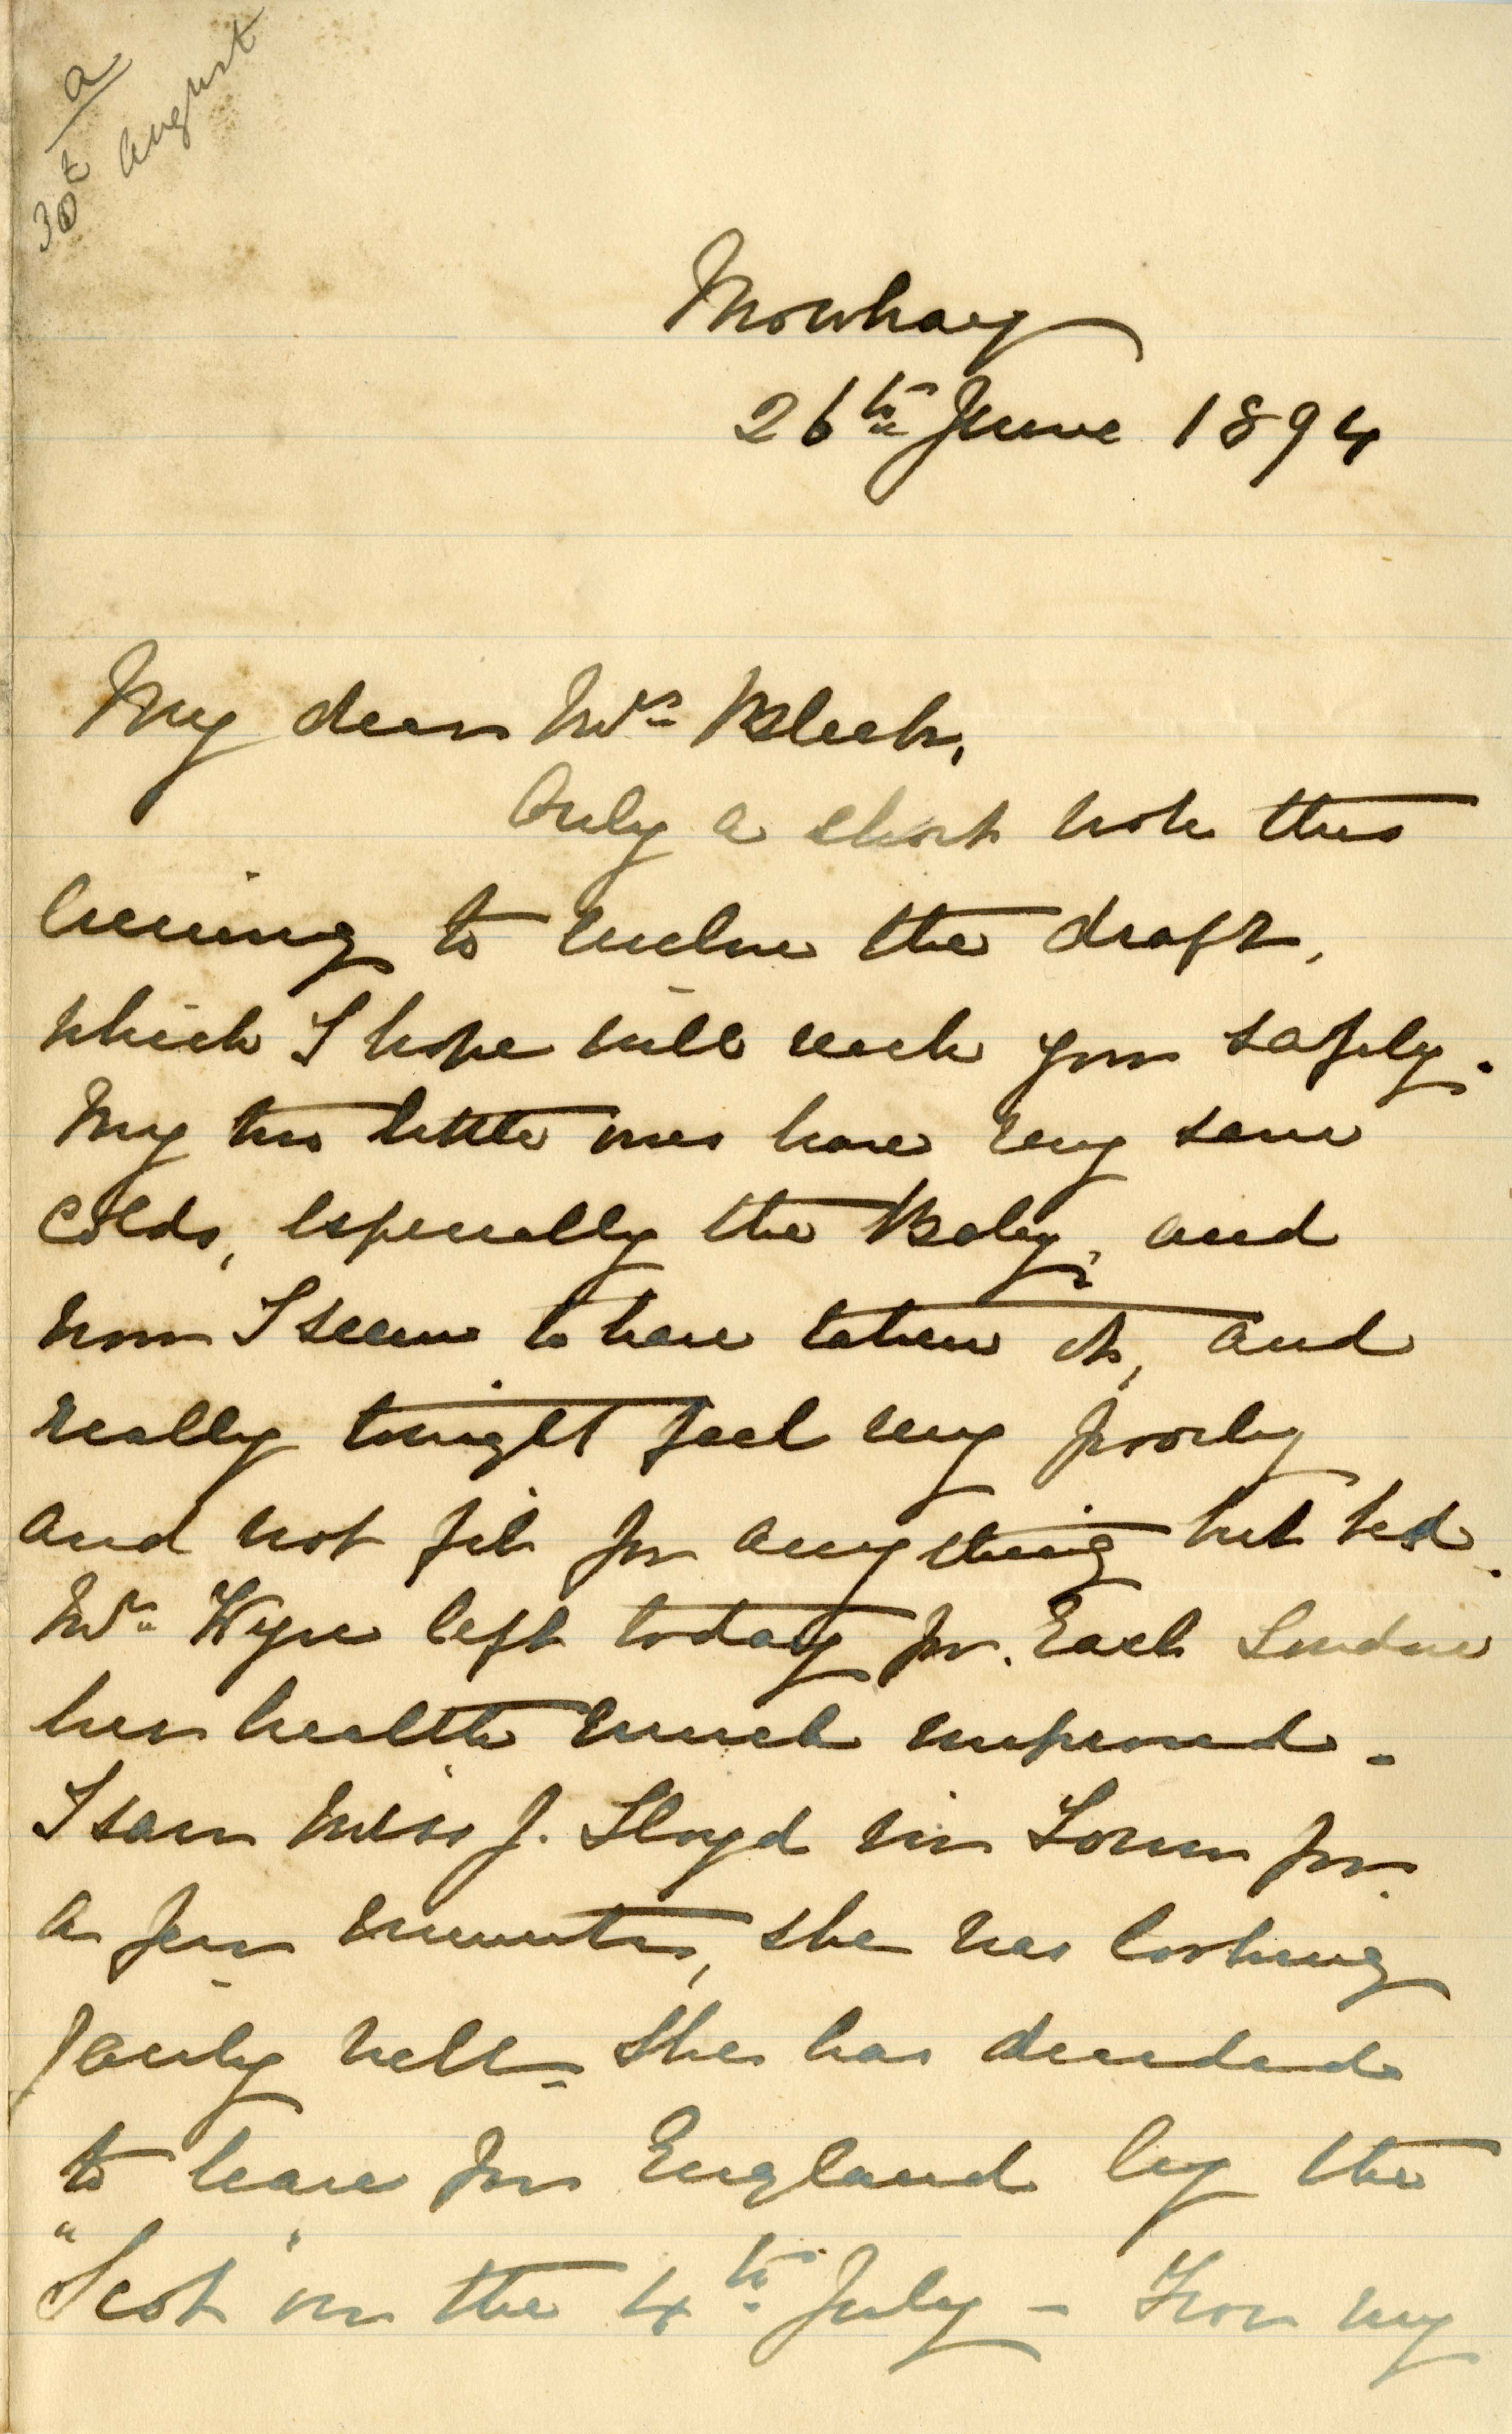 a
30th August
Mowbray
26th June 1894
My dear Mrs Bleek,
Only a short note this
evening to enclose the draft,
which I hope will reach you safely.
My two little ones have very severe
colds, especially the Baby, and
now I seem to have taken it, and
really tonight feel very poorly
and not fit for anything but bed.
Mrs left today for East London
her health much improved -
I saw Miss J. Lloyd in Town for
a few minutes, she was looking
fairly well - She has decided
to leave for England by the
"Scot" on the 4th July - How my